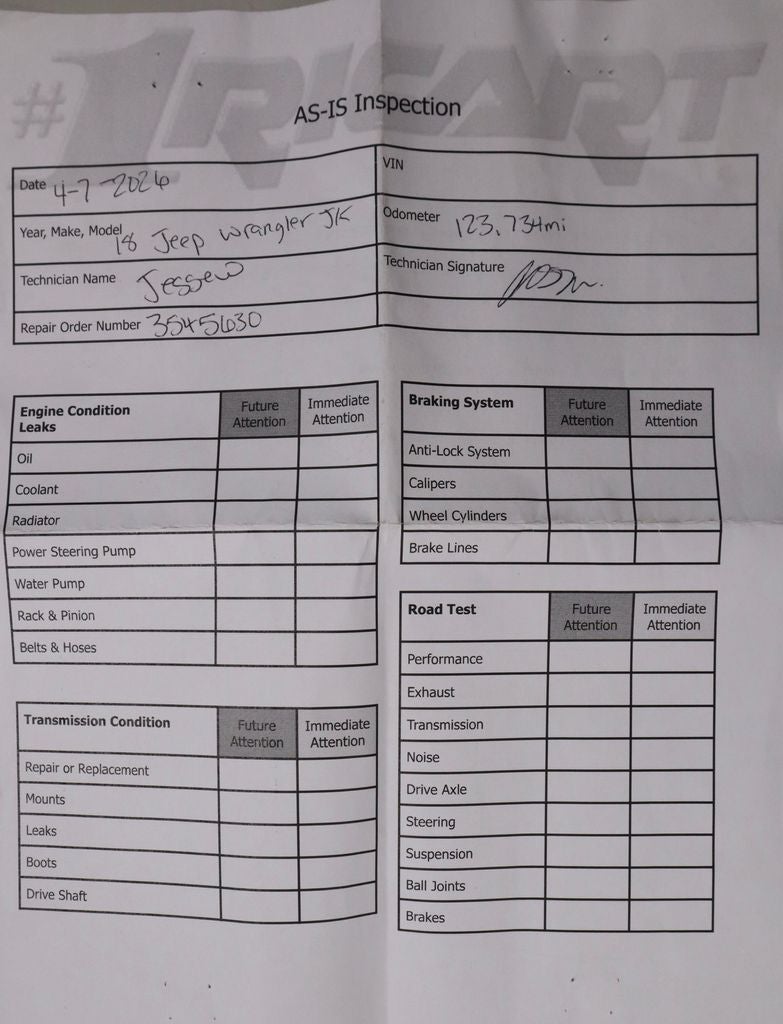 #1 RICART
AS-IS Inspection
Date 4-7-2026
VIN
Year, Make, Model 18 Jeep Wrangler JK
Odometer 123,734mi
Technician Name Jessew
Technician Signature
Repair Order Number 3545630
Engine Condition Leaks Future Attention Immediate Attention
Oil
Coolant
Radiator
Power Steering Pump
Water Pump
Rack & Pinion
Belts & Hoses
Transmission Condition Future Attention Immediate Attention
Repair or Replacement
Mounts
Leaks
Boots
Drive Shaft
Braking System Future Attention Immediate Attention
Anti-Lock System
Calipers
Wheel Cylinders
Brake Lines
Road Test Future Attention Immediate Attention
Performance
Exhaust
Transmission
Noise
Drive Axle
Steering
Suspension
Ball Joints
Brakes